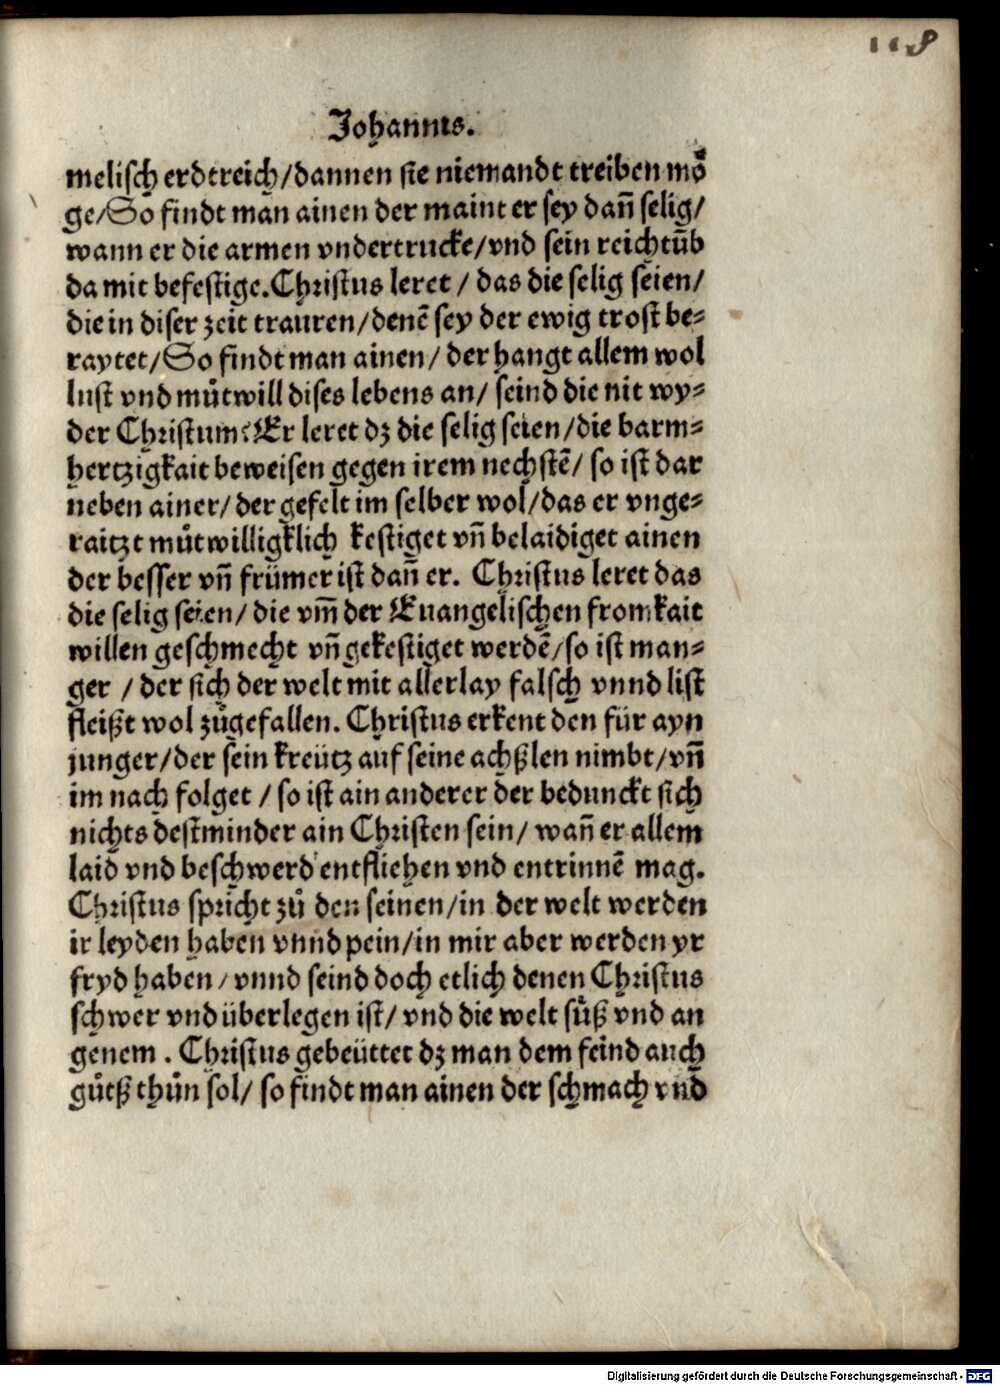 118
Johannis.
melisch erdtreich/dannen sie niemandt treiben moͤ
ge/So findt man ainen der maint er sey dañ selig/
wann er die armen vndertrucke/vnd sein reichtūb
da mit befestige.Christus leret / das die selig seien/
die in diser zeit trauren/denē sey der ewig trost be⸗
raytet/So findt man ainen/ der hangt allem wol
lust vnd muͤtwill dises lebens an/ seind die nit wy⸗
der Christum? Er leret dz die selig seien/die barm⸗
hertzigkait beweisen gegen irem nechstē/ so ist dar
neben ainer/ der gefelt im selber wol/das er vnge⸗
raitzt muͤtwilligklich kestiget vñ belaidiget ainen
der besser vñ frümer ist dañ er. Christus leret das
die selig seien/ die vm̃ der Euangelischen fromkait
willen geschmecht vñ gekestiget werdē/so ist man⸗
ger / der sich der welt mit allerlay falsch vnnd list
fleißt wol zuͤgefallen. Christus erkent den für ayn
junger/der sein kreütz auf seine achßlen nimbt/vñ
im nach folget / so ist ain anderer der bedunckt sich
nichts destminder ain Christen sein/ wañ er allem
laid vnd beschwerd entfliehen vnd entrinnē mag.
Christus spricht zuͤ den seinen/in der welt werden
ir leyden haben vnnd pein/in mir aber werden yr
fryd haben/ vnnd seind doch etlich denen Christus
schwer vnd überlegen ist/ vnd die welt suͤß vnd an
genem . Christus gebeüttet dz man dem feind auch
guͤtß thuͤn sol/ so findt man ainen der schmach vnd
Digitalisierung gefördert durch die Deutsche Forschungsgemeinschaft - DFG